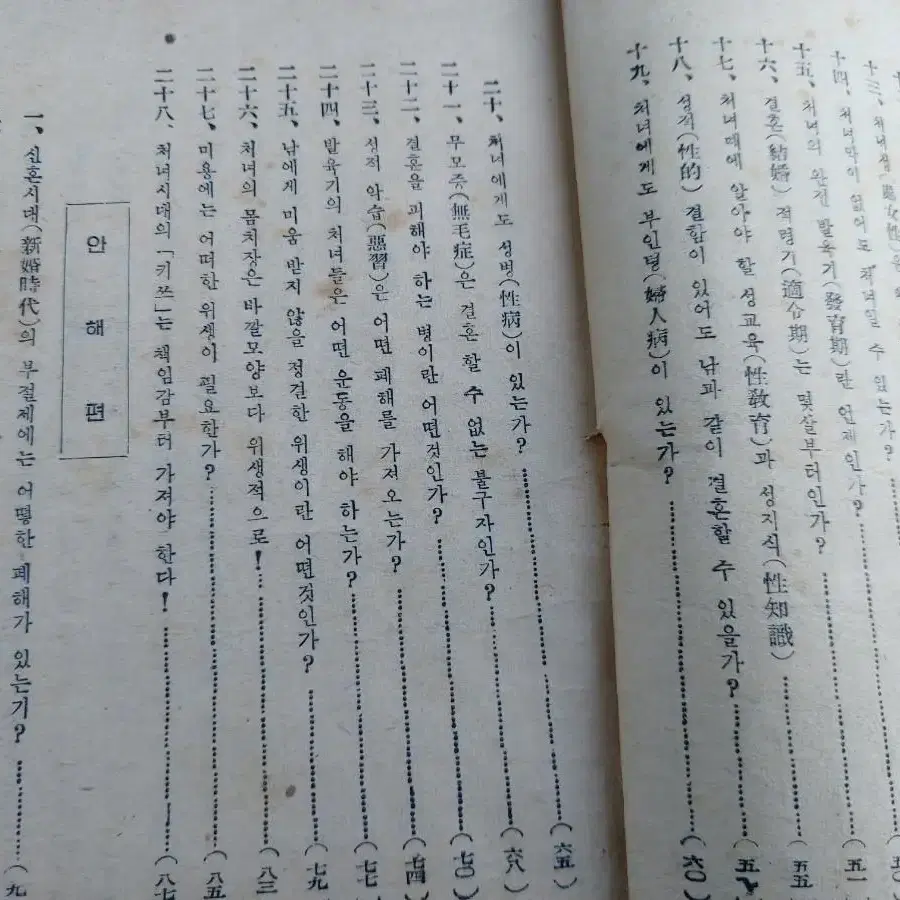 十三、처녀성(處女性)은
十四、처녀막이 없어도 처녀일 수 있는가?……(五一
十五、처녀의 완전 발육기(發育期)란 언제인가?
十六、결혼(結婚) 적령기(適令期)는 몇살부터인가?……(五五
十七、처녀때에 알아야 할 성교육(性敎育)과 성지식(性知識)
十八、성적(性的) 결함이 있어도 남과 같이 결혼할 수 있을가?
十九、처녀에게도 부인병(婦人病)이 있는가?……(六〇)
二十、처녀에게도 성병(性病)이 있는가?……(六五)
二十一、무모증(無毛症)은 결혼 할 수 없는 불구자인가?……(六八)
二十二、결혼을 피해야 하는 병이란 어떤것인가?……(七〇)
二十三、성적 악습(惡習)은 어떤 폐해를 가져오는가?……(七四)
二十四、발육기의 처녀들은 어떤 운동을 해야 하는가?……(七七
二十五、남에게 미움 받지 않을 정결한 위생이란 어떤것인가?……(七九
二十六、처녀의 몸치장은 바깥모양보다 위생적으로!……(八三
二十七、미용에는 어떠한 위생이 필요한가?……(八五
二十八、처녀시대의「키쓰」는 책임감부터 가져야 한다!……(八七
안해편
一、신혼시대(新婚時代)의 부절제에는 어떻한 폐해가 있는기?……(九